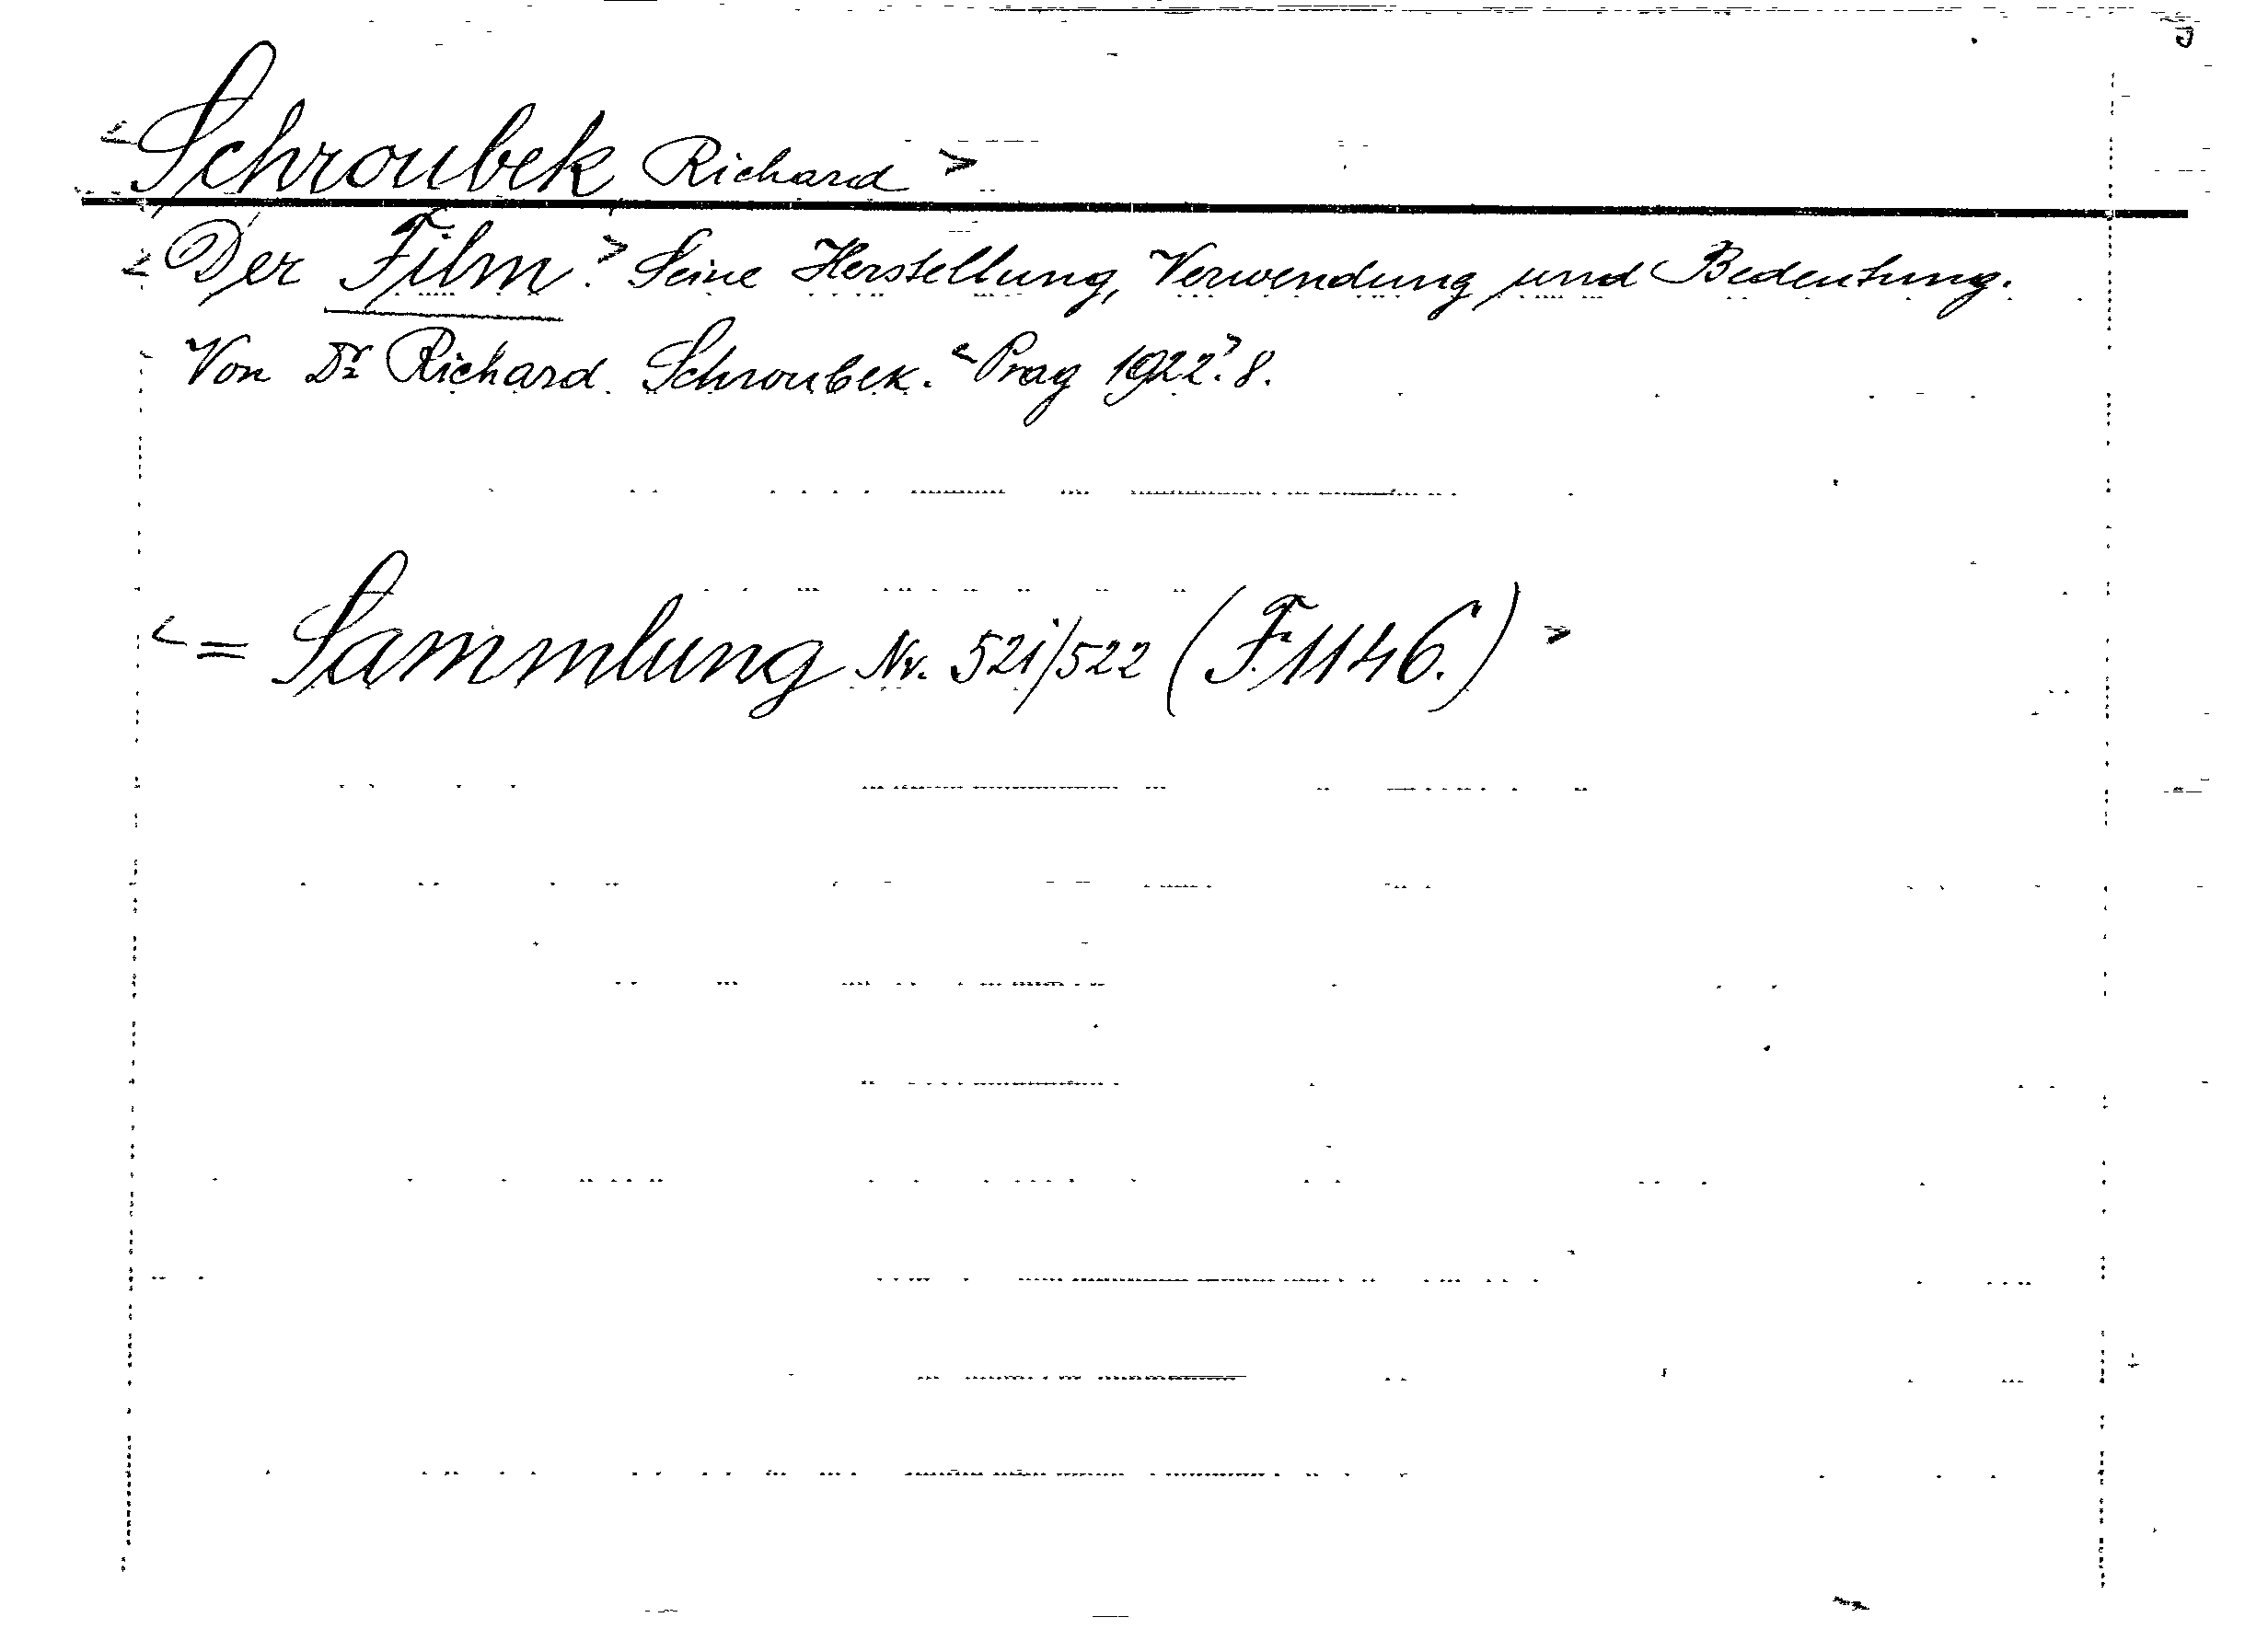 <Schroubek Richard>
<Der Film.> Seine Herstellung, Verwendung und Bedeutung.
Von Dr Richard Schroubek. <Prag 1922>. 8.
<= Sammlung Nr. 521/522 (F.1146.)>